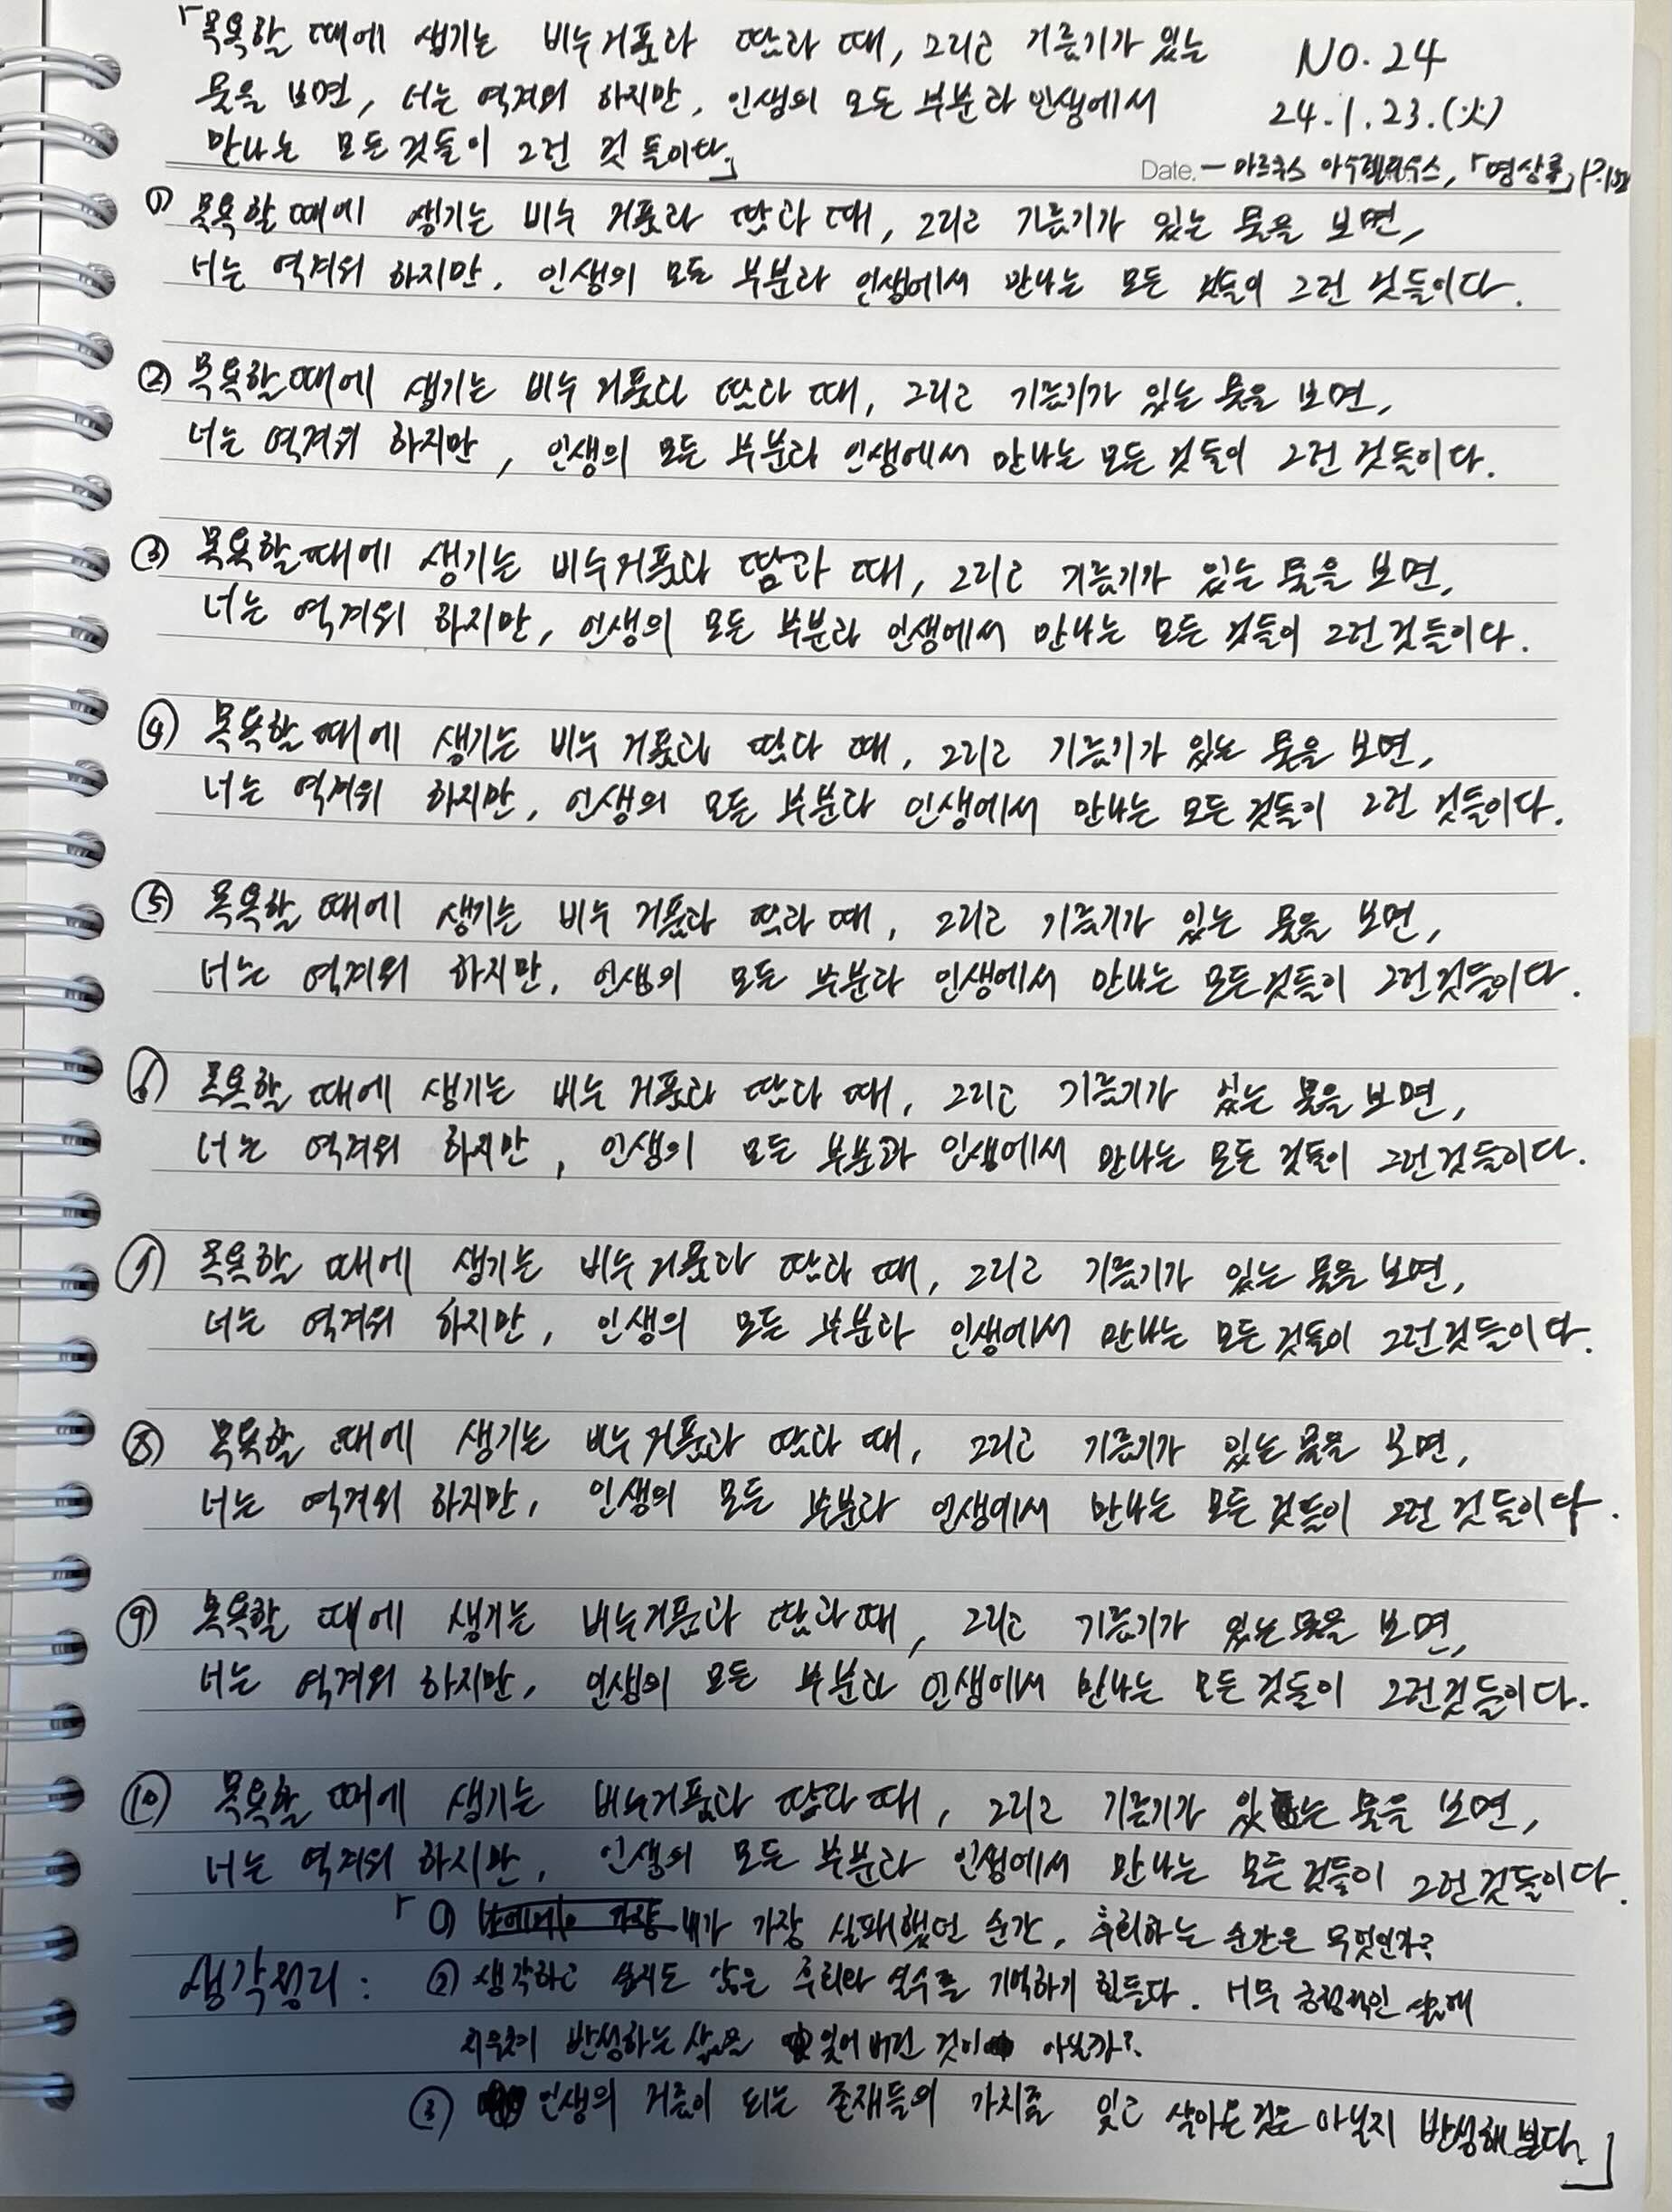 「목욕할 때에 생기는 비누거품과 땀과 때, 그리고 기름기가 있는
물을 보면, 너는 역겨워 하지만, 인생의 모든 부분과 인생에서
만나는 모든 것들이 그런 것 들이다.」
NO. 24
24. 1. 23. (火)
Date. - 마르쿠스 아우렐리우스, 「명상록」
① 목욕할 때에 생기는 비누 거품과 땀과 때, 그리고 기름기가 있는 물을 보면,
너는 역겨워 하지만, 인생의 모든 부분과 인생에서 만나는 모든 것들이 그런 것들이다.
② 목욕할 때에 생기는 비누 거품과 땀과 때, 그리고 기름기가 있는 물을 보면,
너는 역겨워 하지만, 인생의 모든 부분과 인생에서 만나는 모든 것들이 그런 것들이다.
③ 목욕할 때에 생기는 비누거품과 땀과 때, 그리고 기름기가 있는 물을 보면,
너는 역겨워 하지만, 인생의 모든 부분과 인생에서 만나는 모든 것들이 그런 것들이다.
④ 목욕할 때에 생기는 비누 거품과 땀과 때, 그리고 기름기가 있는 물을 보면,
너는 역겨워 하지만, 인생의 모든 부분과 인생에서 만나는 모든 것들이 그런 것들이다.
⑤ 목욕할 때에 생기는 비누 거품과 땀과 때, 그리고 기름기가 있는 물을 보면,
너는 역겨워 하지만, 인생의 모든 부분과 인생에서 만나는 모든 것들이 그런 것들이다.
⑥ 목욕할 때에 생기는 비누 거품과 땀과 때, 그리고 기름기가 있는 물을 보면,
너는 역겨워 하지만, 인생의 모든 부분과 인생에서 만나는 모든 것들이 그런 것들이다.
⑦ 목욕할 때에 생기는 비누 거품과 땀과 때, 그리고 기름기가 있는 물을 보면,
너는 역겨워 하지만, 인생의 모든 부분과 인생에서 만나는 모든 것들이 그런 것들이다.
⑧ 목욕할 때에 생기는 비누 거품과 땀과 때, 그리고 기름기가 있는 물을 보면,
너는 역겨워 하지만, 인생의 모든 부분과 인생에서 만나는 모든 것들이 그런 것들이다.
⑨ 목욕할 때에 생기는 비누거품과 땀과 때, 그리고 기름기가 있는 물을 보면,
너는 역겨워 하지만, 인생의 모든 부분과 인생에서 만나는 모든 것들이 그런 것들이다.
⑩ 목욕할 때에 생기는 비누거품과 땀과 때, 그리고 기름기가 있는 물을 보면,
너는 역겨워 하지만, 인생의 모든 부분과 인생에서 만나는 모든 것들이 그런 것들이다.
「① 내가 가장 실패했던 순간, 후회하는 순간은 무엇인가?
생각정리 : ② 생각하고 싶지도 않은 후회와 실수를 기억하기 힘들다. 너무 긍정적인 삶에
치우쳐 반성하는 삶을 잊어 버린 것이 아닐까?
③ 인생의 거름이 되는 존재들의 가치를 잊고 살아온 것은 아닐지 반성해 본다.」